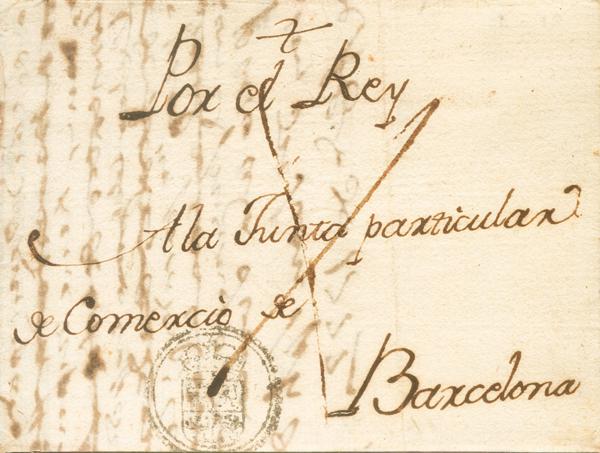 Por el Rey
A la Junta particular
de Comercio de
Barcelona